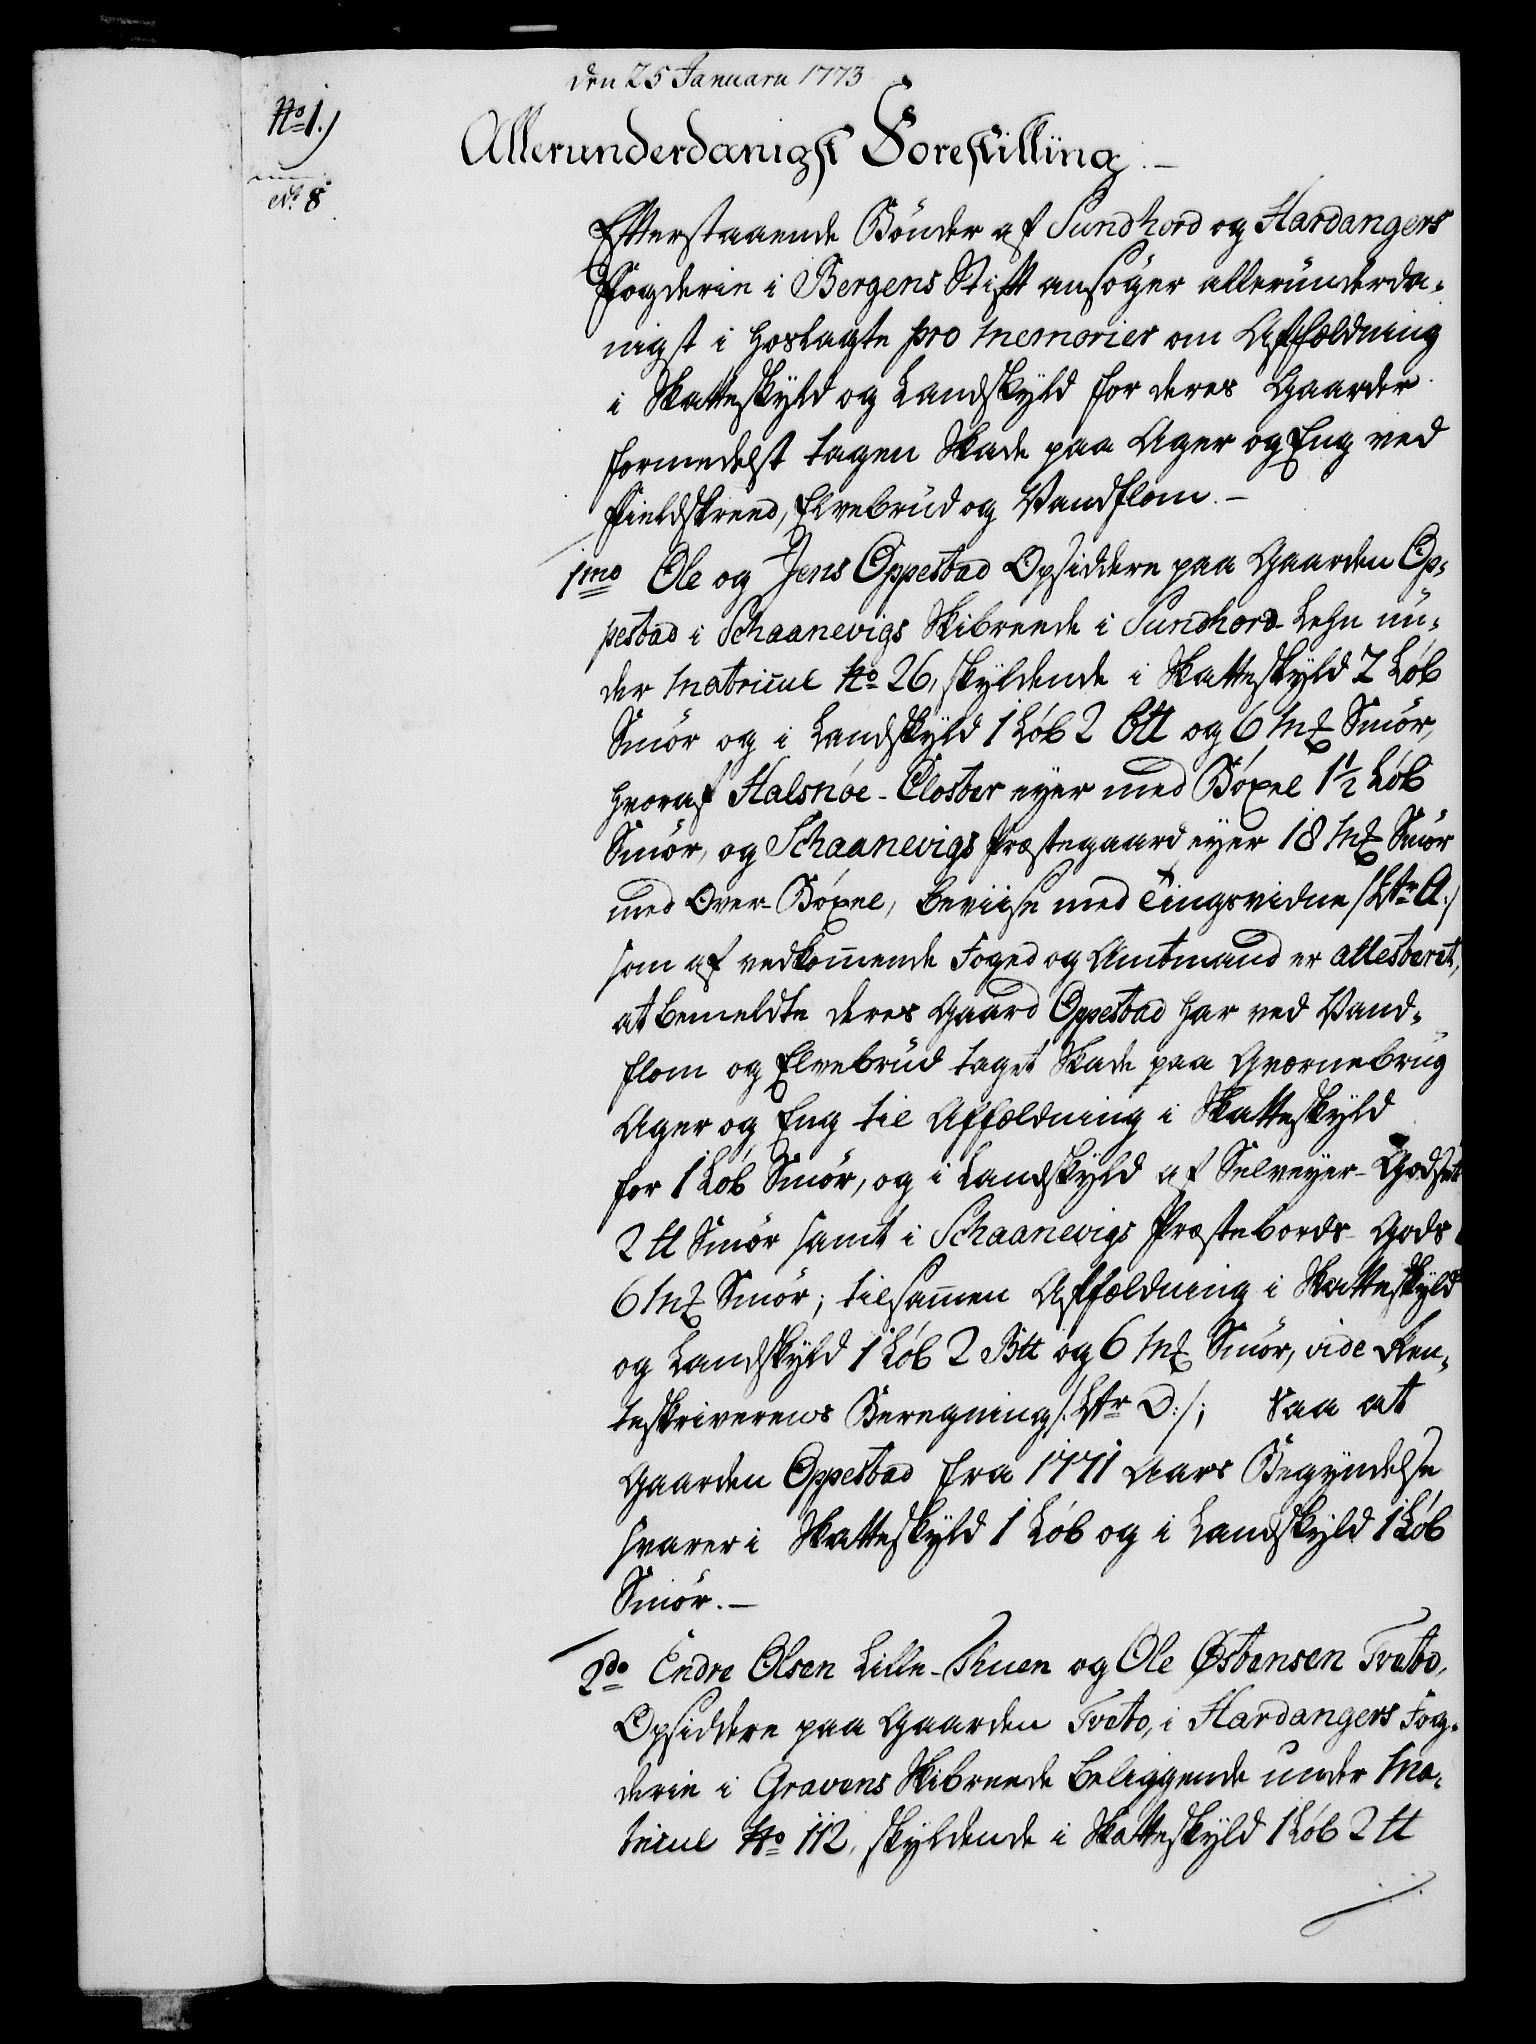 den 25 Januarii 1773
No 1.)
Allerunderdanigst Forestilling.—
No 8
Efterstaaende Bönder af Sundhord og Hardangers
Fogderie i Bergens Stift ansöger allerunderda-
nigst i hoslagte pro memorier om Affældning
i Skatteskyld og Landskyld for deres Gaarder
formedelst tagen Skade paa Ager og Eng ved
Fieldskreed, Elvebrud og Vandflom.—
1mo Ole og Jens Oppestad Opsiddere paa Gaarden Op-
pestad i Schaanevigs Skibreede i Sundhord-Lehn un-
der Matricul No 26, skyldende i Skatteskyld 2 Løb
Smør og i Landskyld 1 Løb 2 Btt og 6 mk Smør,
hvoraf Halsnöe-Closter eyer med Böxel 1½ Løb
Smør, og Schaanevigs Præstegaard eyer 18 mk Smør
med Over-Böxel, beviise med Tingsvidne /: Ltr A:/
som af vedkommende Foged og Amtmand er attesteret,
at bemeldte deres Gaard Oppestad har ved Vand-
flom og Elvebrud taget Skade paa Qværnebrug
Ager og Eng til Affældning i Skatteskyld
for 1 Løb Smør, og i Landskyld af Selveyer-Godset
2 tt Smør samt i Schaanevigs Præstebords-Gods
6 mk Smør; tilsammen Affældning i Skatteskyld
og Landskyld 1 Løb 2 Btt og 6 mk Smør, vide Ren-
teskriverens Beregning /: Ltr D:/; saa at
Gaarden Oppestad fra 1771 Aars Begyndelse
svarer i Skatteskyld 1 Løb og i Landskyld 1 Løb
Smør.—
2do Endre Olsen Lille-Thuen og Ole Østensen Tveto,
Opsiddere paa Gaarden Tveto, i Hardangers Fog-
derie i Gravens Skibreede beliggende under Ma-
tricul No 112, skyldende i Skatteskyld 1 Løb 2 tt